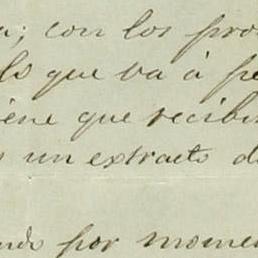 ; con los pro
lo que va á pe
iene que recibir
un extracto d
ndo por momen